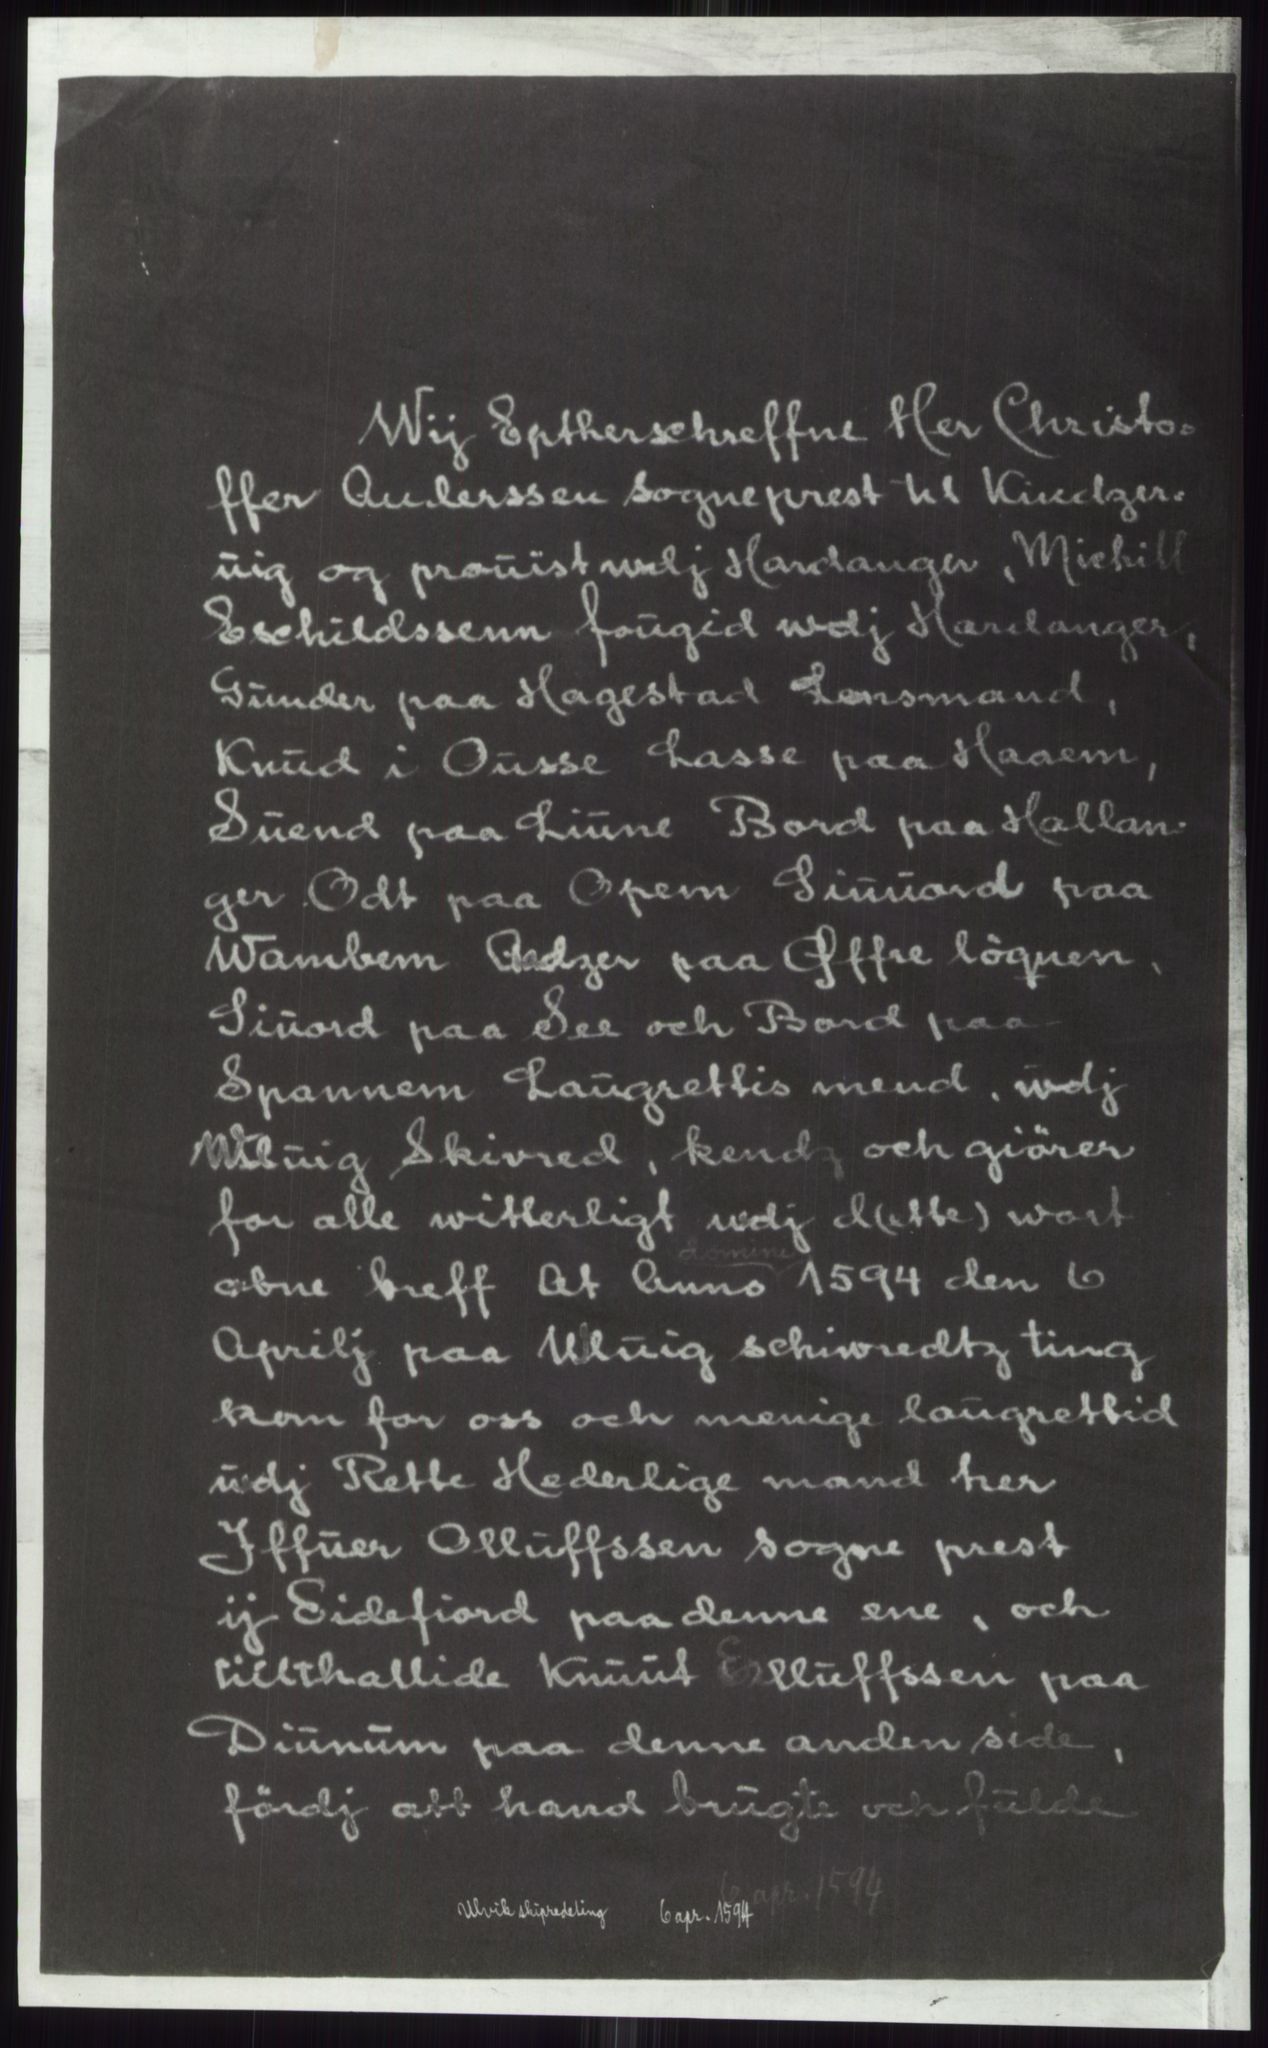 Wij Eptherschreffne Her Christo-
ffer Anderssen sogneprest til Kindzer-
uig og prouist wdj Hardanger, Michill
Eschildssenn fougid wdj Hardanger,
Gunder paa Hagestad Lensmand,
Knud i Ousse Lasse paa Haaem,
Suend paa Liune Bord paa Hallan-
ger Odt paa Opem Siuuord paa
Wambem Aadzer paa Øffre löquen,
Siuord paa See och Bord paa
Spannem Laugrettis mend, wdj
Wluig Skivred, kendz och giörer
for alle witterligt wdj d(ette) wort
domine
obne breff At Anno 1594 den 6
Aprilj paa Wluig schiwredtz ting
kom for oss och menige laugrettid
udj Rette Hederlige mand her
Iffuer Olluffssen sogne prest
ij Eidefiord paa denne ene, och
tillthallide Knuut Elluffssen paa
Diunum paa denne anden side,
fördj att hand brugte och fulde
6 apr. 1594
Ulvik skipredeting 6 apr. 1594